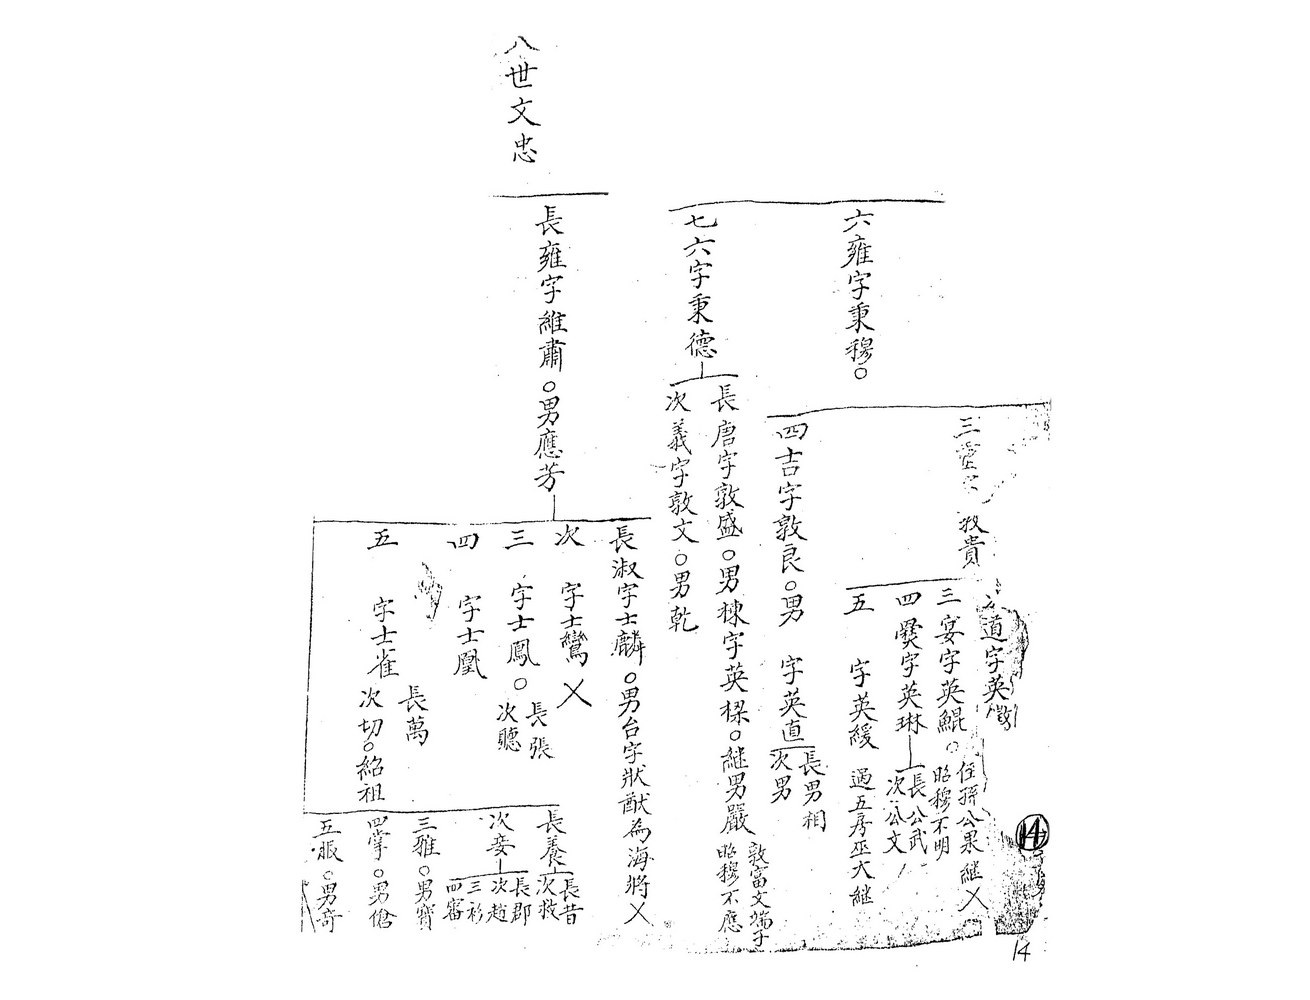 六雍字秉穆○
七六字秉德
三
敦貴
道字英
三宴字英鯤○
侄孫公果継㐅
昭穆不明
四爕字英琳
長公武
次公文
五 字英緩 過五房巫大継
四吉字敦良○男 字英直
長男相
次男
長唐字敦盛○男棟字英樑○継男嚴
敦富文端子
昭穆不應
次義字敦文○男乾
八世文忠
長雍字維肅○男應芳
長淑字士麟○男台字狀猷為海將㐅
次 字士鸞㐅
三 字士鳳○
長張
次聽
四 字士凰
五 字士雀
長萬
次切○紹祖
長養
長昔
次救
次妾
長郡
次趙
三衫
四審
三雅○男寶
四掌○男傖
五服○男奇
14
14